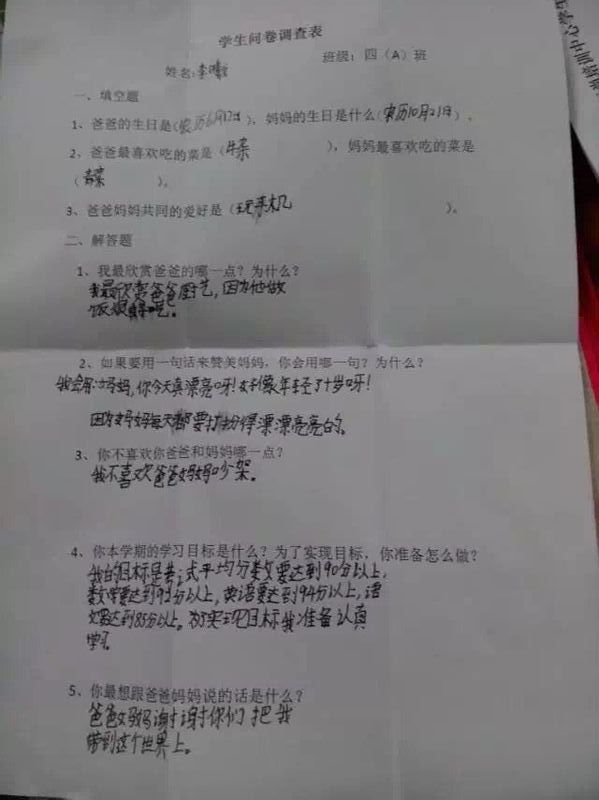 学生问卷调查表
班级：四（A）班
姓名：李
一、填空题
1、爸爸的生日是（农历6月17日），妈妈的生日是什么（农历10月21日）。
2、爸爸最喜欢吃的菜是（牛菜 ），妈妈最喜欢吃的菜是
（青菜 ）。
3、爸爸妈妈共同的爱好是（玩手机 ）。
二、解答题
1、我最欣赏爸爸的哪一点？为什么？
我最欣赏爸爸厨艺，因为他做
饭很好吃。
2、如果要用一句话来赞美妈妈，你会用哪一句？为什么？
我会用：妈妈，你今天真漂亮呀！好像年轻了十岁呀！
因为妈妈每天都要打扮得漂漂亮亮的。
3、你不喜欢你爸爸和妈妈哪一点？
我不喜欢爸爸妈妈吵架。
4、你本学期的学习目标是什么？为了实现目标，你准备怎么做？
我的目标是考试平均分数要达到90分以上，
数学要达到92分以上，英语要达到94分以上，语
文要达到85分以上。为了实现目标我准备认真
学习。
5、你最想跟爸爸妈妈说的话是什么？
爸爸妈妈谢谢你们把我
带到这个世界上。